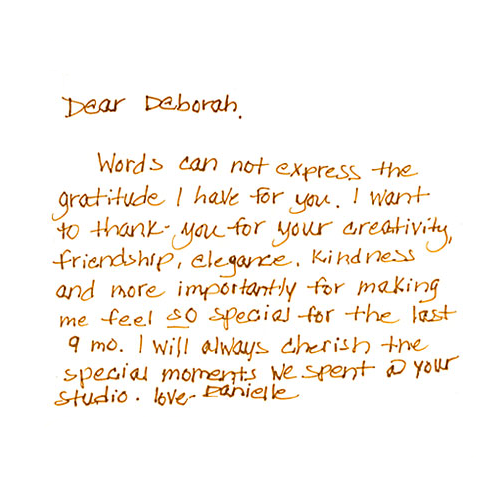 Dear Deborah.
Words can not express the
gratitude I have for you. I want
to thank-you for your creativity,
friendship, elegance, kindness
and more importantly for making
me feel so special for the last
9 mo. I will always cherish the
special moments we spent @ your
studio. love- Danielle